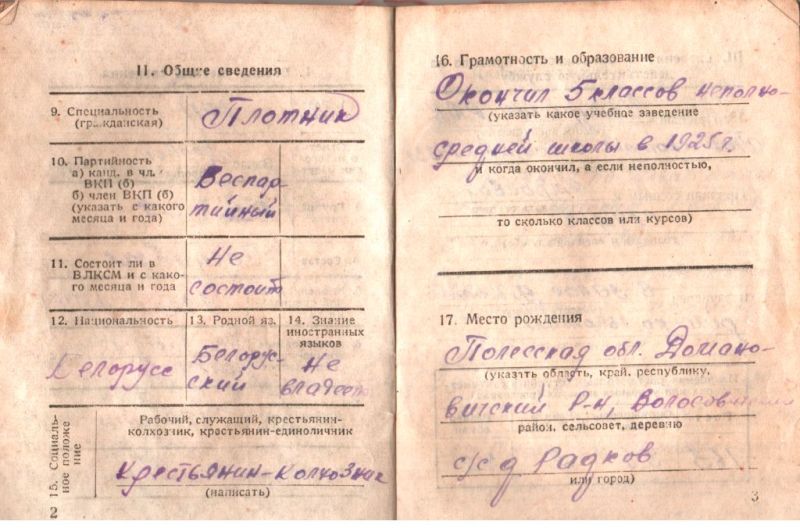 II. Общие сведения
9. Специальность
(гражданская)
Плотник
10. Партийность
а) канд. в чл.
ВКП (б)
б) член ВКП (б)
(указать с какого
месяца и года)
Беспар-
тийный
11. Состоит ли в
ВЛКСМ и с како-
го месяца и года
Не
состоит
12. Национальность
Белорусс
13. Родной яз.
Белорус-
ский
14. Знание
иностранных
языков
Не
владеет
15. Социаль-
ное положе
ние
Рабочий, служащий, крестьянин-
колхозник, крестьянин-единоличник
Крестьянин-колхозник
(написать)
2
16. Грамотность и образование
Окончил 5 классов неполно-
(указать какое учебное заведение
средней школы в 1925 г.
и когда окончил, а если неполностью,
то сколько классов или курсов)
17. Место рождения
Полесская обл. Домано-
(указать область, край, республику,
вичский р-н, Волосовичский
район, сельсовет, деревню
с/с д Радков
или город)
3